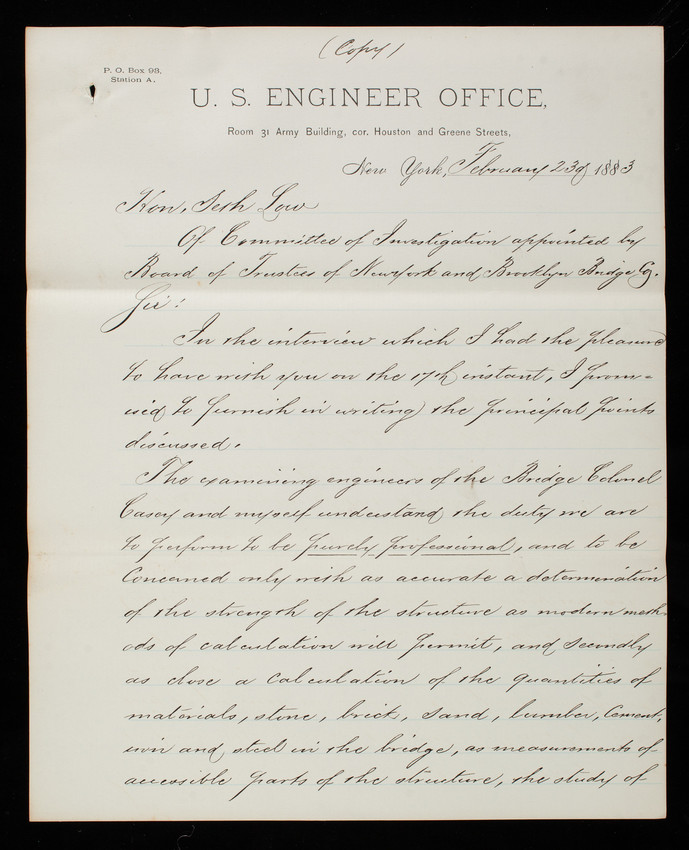 (Copy)
P. O. Box 98,
Station A.
U. S. ENGINEER OFFICE,
Room 31 Army Building, cor. Houston and Greene Streets,
New York, February 23d 1883
Hon. Seth Low
Of Committee of Investigation appointed by
Board of Trustees of Newyork and Brooklyn Bridge Co.
Sir:
In the interview which I had the pleasure
to have with you on the 17th instant, I prom-
ised to furnish in writing the principal points
discussed.
The examining engineers of the Bridge Colonel
Casey and myself understand the duty we are
to perform to be purely professional, and to be
Concerned only with as accurate a determination
of the strength of the structure as modern meth-
ods of calculation will permit, and secondly
as close a calculation of the quantities of
materials, stone, brick, sand, lumber, Cement,
iron and steel in the bridge, as measurements of
accessible parts of the structure, the study of